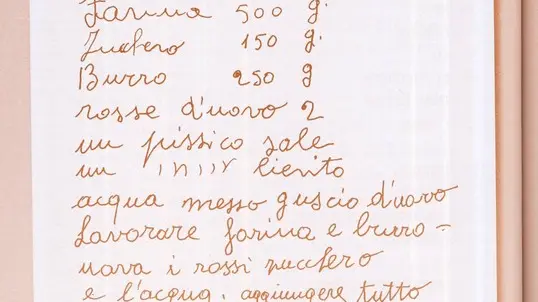 Farina 500 g.
Zucchero 150 g.
Burro 250 g
rosse d'uovo 2
un pissico sale
un lievito
acqua messo guscio d'uovo
Lavorare farina e burro -
uova i rossi zucchero
e l'acqua. aggiungere tutto